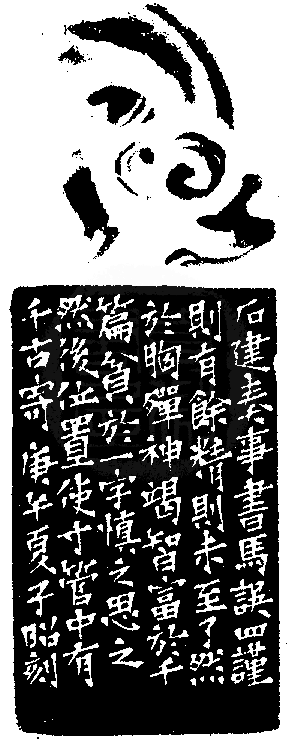 石建奏事書馬誤四謹
則有餘精則未至了然
於胸殫神竭智富於千
篇貧於一字慎之思之
然後位置使寸管中有
千古寄 庚午夏子昭刻